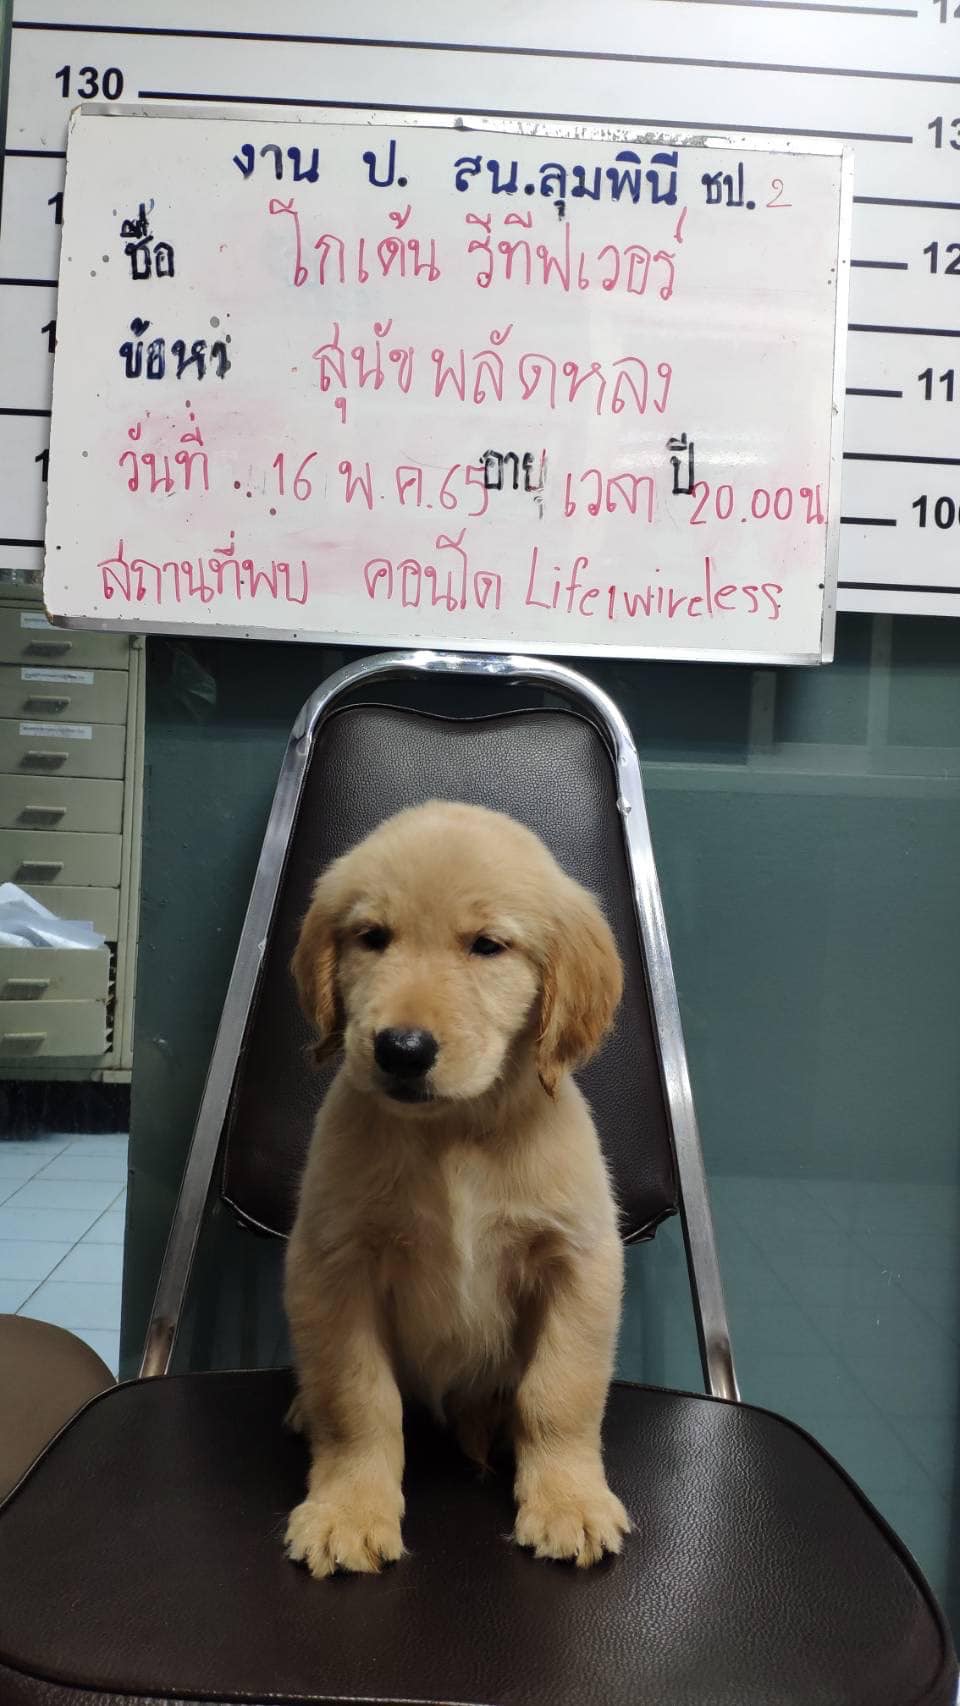 130
งาน ป. สน.ลุมพินี ชป. 2
ชื่อ โกเด้น รีทีฟเวอร์
ข้อหา สุนัขพลัดหลง
วันที่ 16 พ.ค.65 อายุ เวลา ปี 20.00น.
สถานที่พบ คอนโด Life1wireless